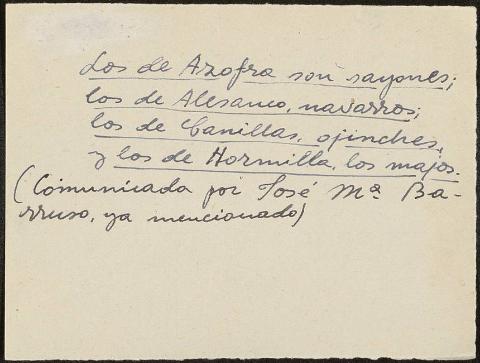 Los de Azofra son sayones;
los de Alesanco, navarros;
los de Canillas, ojinches,
y los de Hormilla, los majos.
(Comunicada por José Mª Ba-
rruso, ya mencionado)